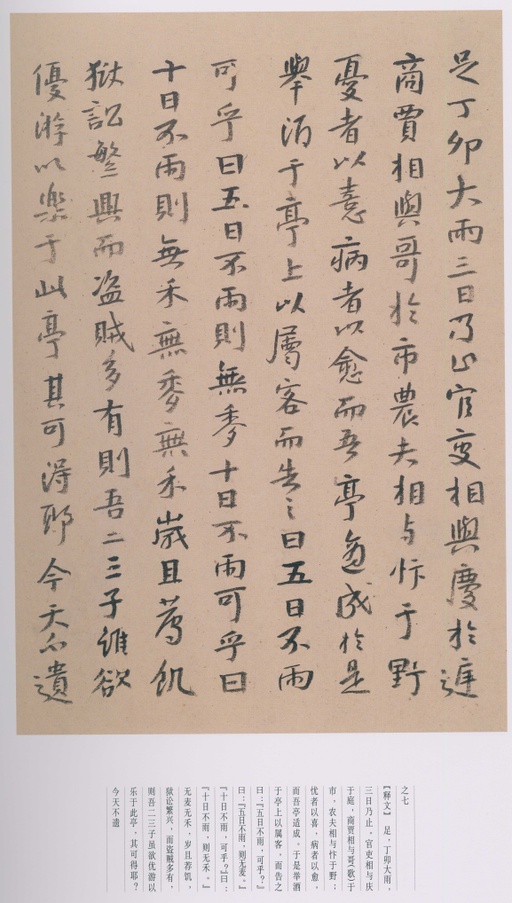 足丁卯大雨三日乃止官吏相與慶於庭
商賈相與哥於市農夫相与忭于野
憂者以憙病者以愈而吾亭適成於是
舉酒于亭上以屬客而告之曰五日不雨
可乎曰五日不雨則無麥十日不雨可乎曰
十日不雨則無禾無麥無禾歲且荐飢
獄訟繁興而盗賊多有則吾二三子雖欲
優游以樂于此亭其可得耶今天不遺
之七
【释文】 足，丁卯大雨，
三日乃止，官吏相与庆
于庭，商贾相与哥(歌)于
市，农夫相与忭于野；
忧者以喜，病者以愈，
而吾亭适成。于是举酒
于亭上以属客，而告之
曰：『五日不雨，可乎？』
曰：『五日不雨，则无麦。』
『十日不雨，可乎？』曰：
『十日不雨，则无禾。』
无麦无禾，岁且荐饥，
狱讼繁兴，而盗贼多有，
则吾二三子虽欲优游以
乐于此亭，其可得耶？
今天不遗